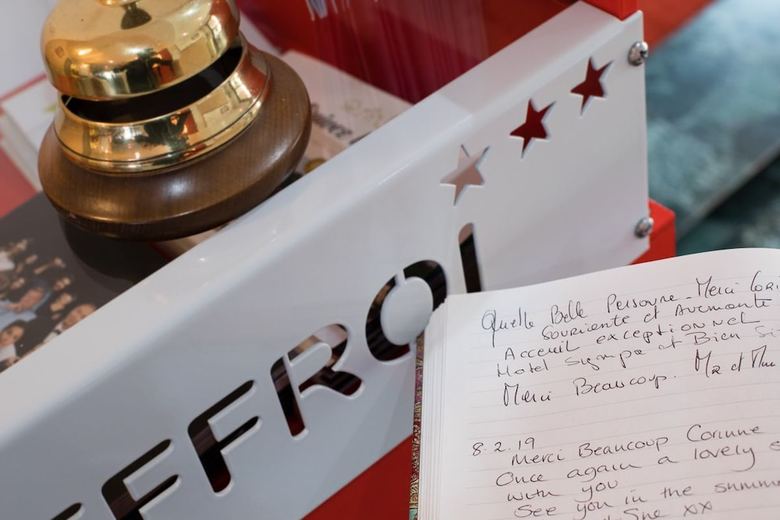 EFFROI
Quelle Belle Personne - Merci
Souriente et Avenante
Acceuil exceptionnel
Hotel Sympa et Bien
Merci Beaucoup. Mr et Mme
8.2.19
Merci Beaucoup Corinne
Once again a lovely
with you
See you in the summe
Sue xx